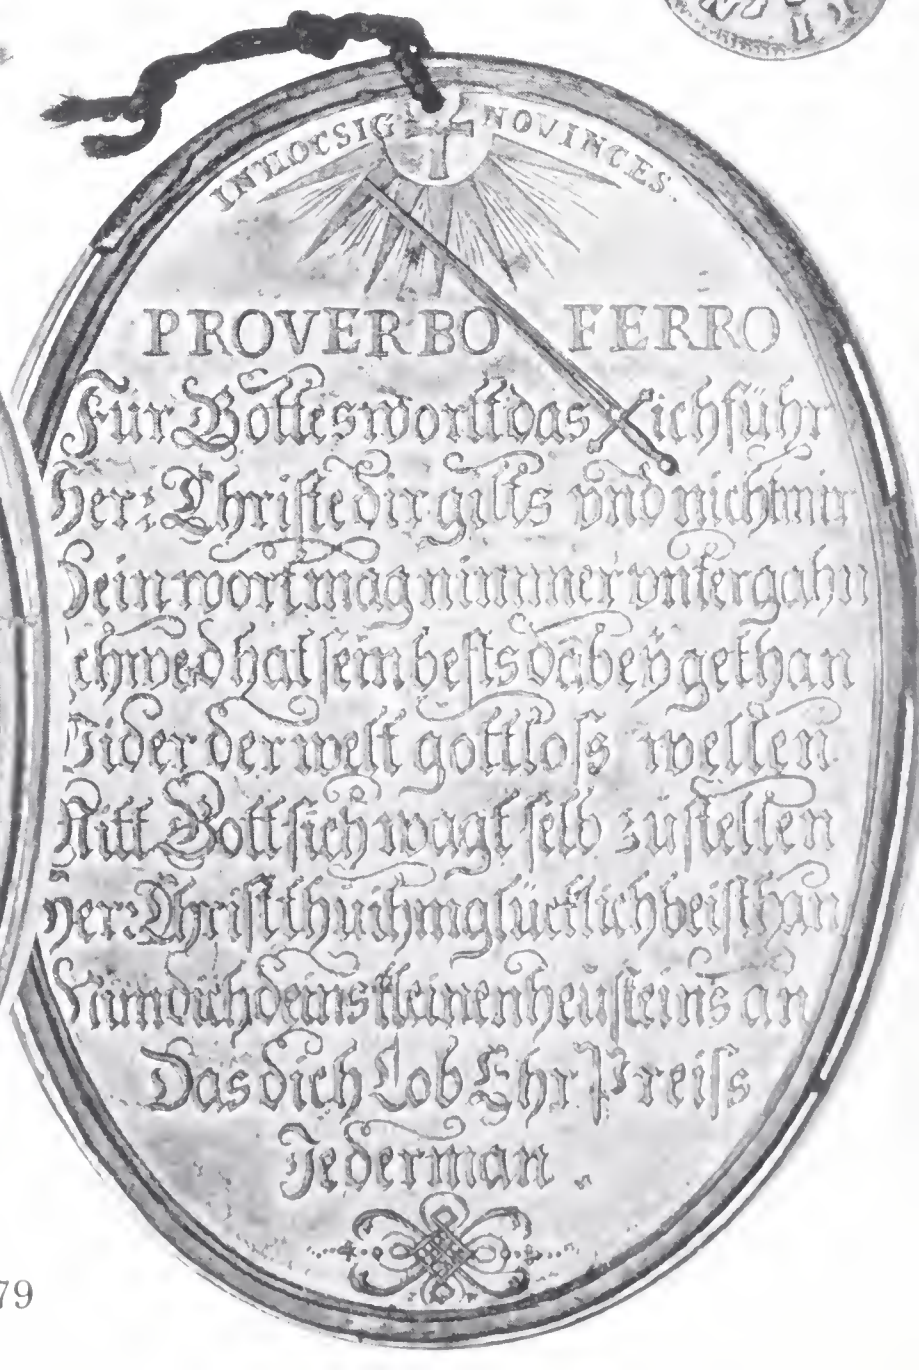 IN HOC SIG NO VINCES.
PRO VERBO FERRO
Für Gottes wortt das ich führ
Her: Christe dir gilts vnd nicht mir
Dein wort mag nimmer vntergahn
schwed hat sein bests dabeÿ gethan
Wider der welt gottloss wellen
Ritt Gott sich wagt selb zůstellen
Her: Christ thu ihm glücklich beisthan
Nim dich deins kleinen heüfleins an
Das dich Lob Ehr Preiss
Jederman.
79